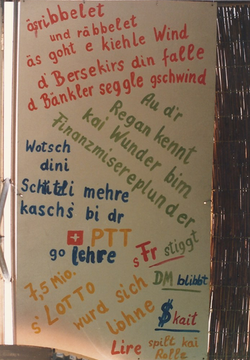 äsribbelet
und räbbelet
äs goht e kiehle Wind
d Bersekirs din falle
d Bänkler seggle gschwind
Au d'r
Regan kennt
kai Wunder bim
Finanzmisereplunder
Wotsch
dini
Schitzli mehre
kaschs bi dr
PTT
go lehre
s Fr stiggt
DM blibbt
$ kait
7,5 mio.
s' LOTTO
wurd sich
lohne
Lire spilt kai
Rolle